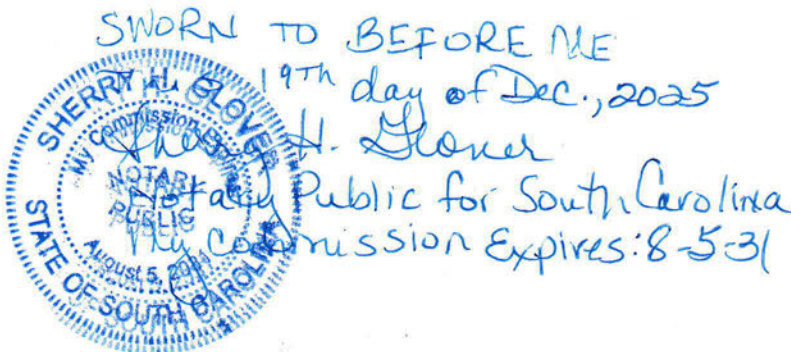 SWORN TO BEFORE ME
THIS 19TH day of Dec., 2025
Sherry H. Glover
Notary Public for South Carolina
My Commission Expires: 8-5-31
SHERRY H. GLOVER
My Commission Expires
NOTARY
PUBLIC
August 5, 2031
STATE OF SOUTH CAROLINA